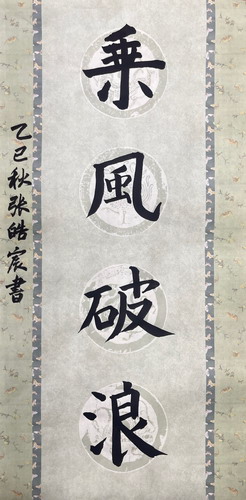 乘風破浪
乙巳秋张皓宸書